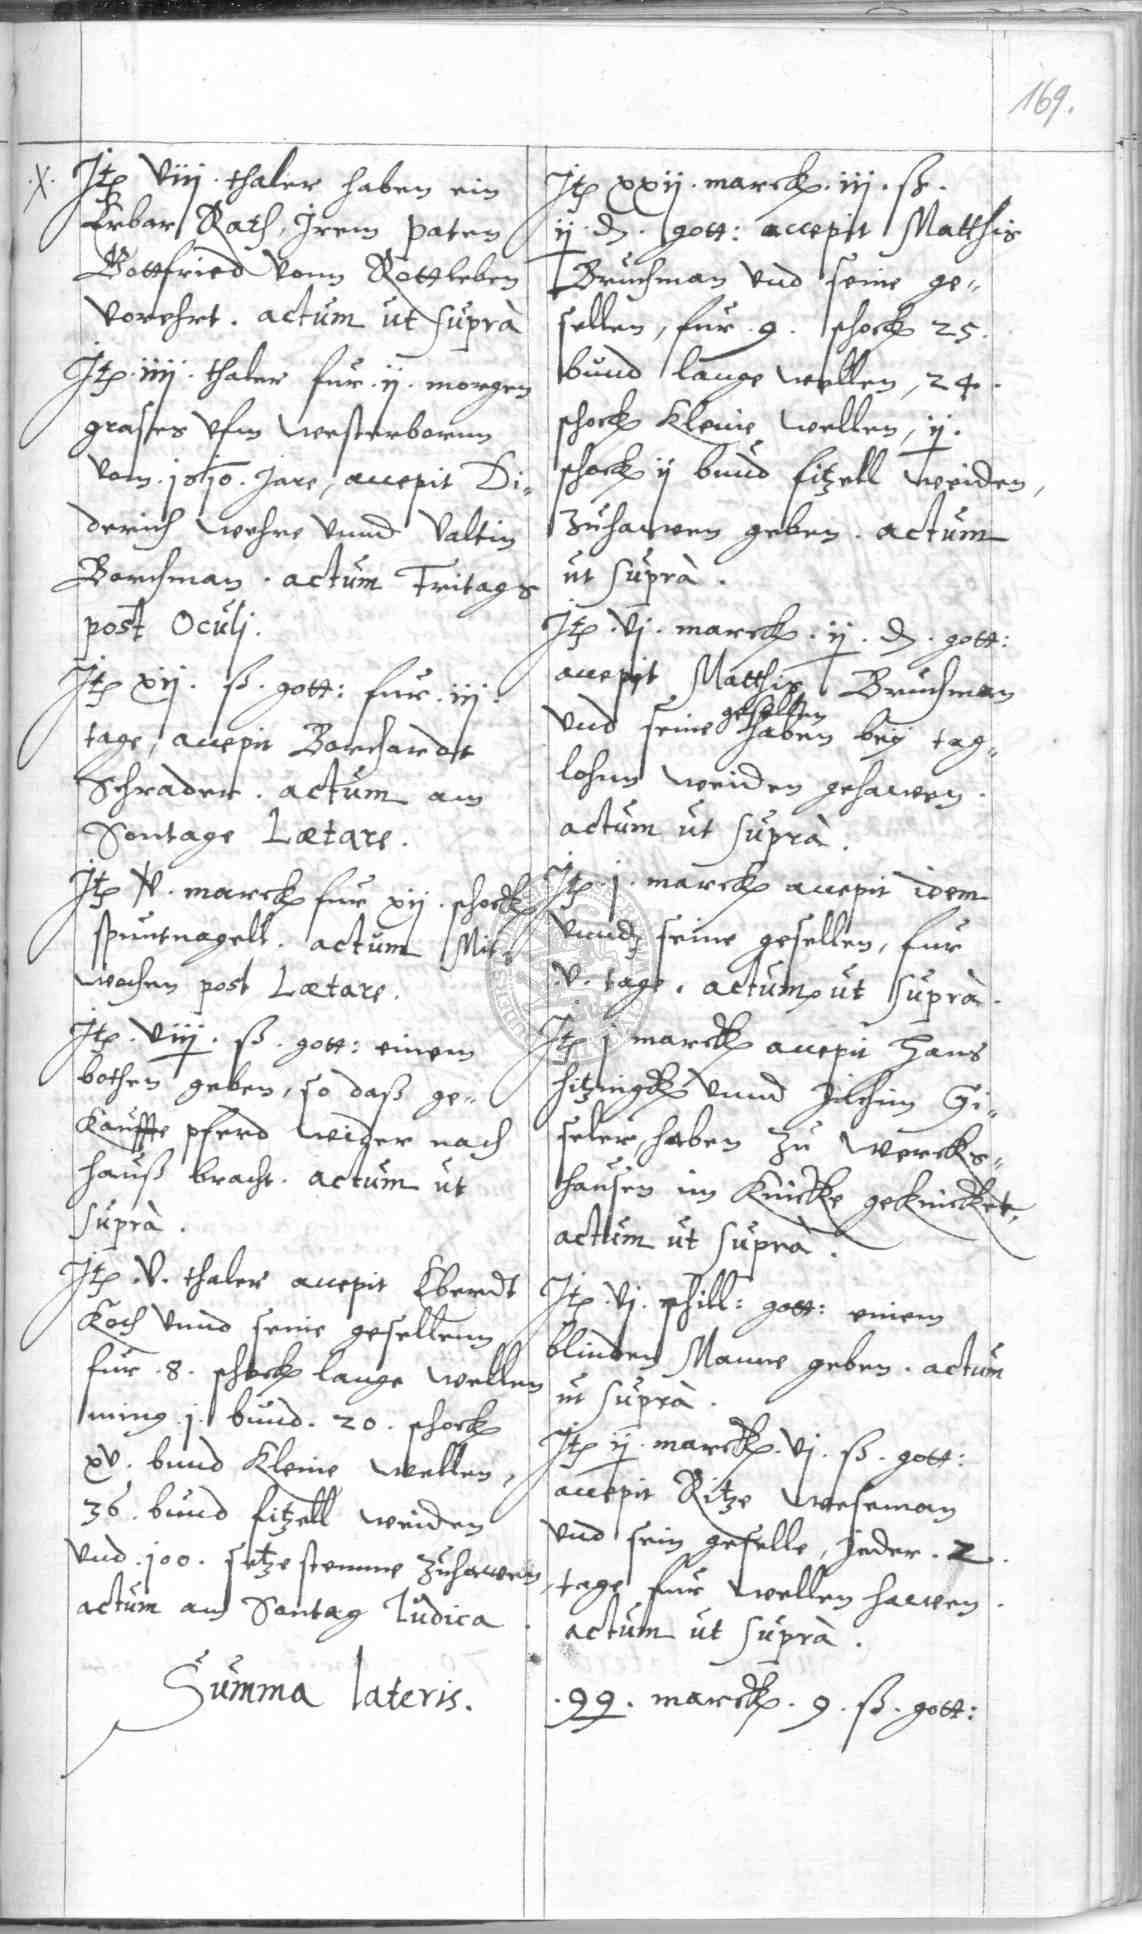 169.
.X. Jtem viij. thaler haben ein
Erbar Rath, Jrem paten
Gottfried vonn Rottleben
vorehrt. actum ut suprà
Jtem. iiij. thaler fur. ij. morgen
grases vfm westerbornn
vom. 1610. Jare, accepit Di-
derich wehre vnnd Valtin
Borchman. actum Fritags
post Oculj.
Jtem xij. ß. gott: fur. iij.
tage, accepit Borchardt
Schrader. actum am
Sontage Lætare.
Jtem v. marck fur xij. schock
spuntnagell. actum Mit-
wochen post Lætare.
Jtem. viij. ß. gott: einem
bothen geben, so daß ge-
kauffte pferd wider nach
hauß bracht. actum ut
suprà.
Jtem. v. thaler accepit Eberdt
Koch vnnd seine gesellenn
fur. 8. schock lange wellen
ming j. bund. 20. schock
xv. bund kleine wellen,
36. bund fitzell weiden
vnd. 100. setze stemme zuhawen,
actum am Sontag Iudica.
Summa lateris.
Jtem xxij. marck. iij. ß.
ij. d. gott: accepit Matthis
Bruchman vnd seine ge-
sellen, fur. 9. schock 25.
bund lange wellen, 24.
schock kleine wellen, ij.
schock ij bund fitzell weiden,
zuhawen geben. actum
ut suprà.
Jtem. vj. marck. ij. d. gott:
accepit Matthis Bruchman
vnd seine gesellen haben bey tag-
lohnn weiden gehawen.
actum ut suprà.
Jtem. j. marck accepit idem
vnnd seine gesellen, fur
.v. tage. actum ut suprà.
Jtem j marck accepit Hans
hitzingk vnnd Jilchim Gi-
seler, haben zu wercks-
hausen im Knicke geknicket,
actum ut suprà.
Jtem. vj. schill: gott: einem
blinden Manne geben. actum
ut suprà.
Jtem ij. marck. vj. ß. gott:
accepit Ritze weseman
vnd sein geselle, jeder. 2.
tage fur wellen hawen.
actum ut suprà.
.99. marck. 9. ß. gott: